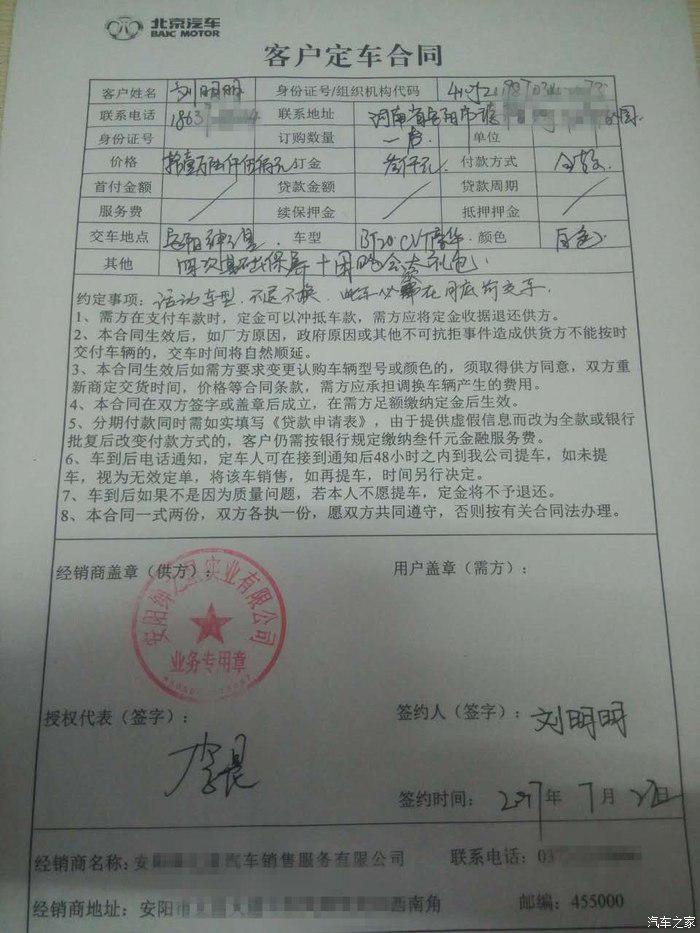 北京汽车
BAIC MOTOR
客户定车合同
客户姓名 刘明明 身份证号/组织机构代码
联系电话 1863 联系地址 河南省安阳市
身份证号 订购数量 一台 单位
价格 拾壹万陆仟伍佰元 订金 叁仟元 付款方式 全款
首付金额 / 贷款金额 / 贷款周期 /
服务费 / 续保押金 / 抵押押金 /
交车地点 安阳 车型 CVT豪华 颜色 白色
其他 四次基础保养+团购会大礼包.
约定事项：活动车型.不退不换.此车必须在月底前交车.
1、需方在支付车款时，定金可以冲抵车款，需方应将定金收据退还供方。
2、本合同生效后，如厂方原因，政府原因或其他不可抗拒事件造成供货方不能按时
交付车辆的，交车时间将自然顺延。
3、本合同生效后如需方要求变更认购车辆型号或颜色的，须取得供方同意，双方重
新商定交货时间，价格等合同条款，需方应承担调换车辆产生的费用。
4、本合同在双方签字或盖章后成立，在需方足额缴纳定金后生效。
5、分期付款同时需如实填写《贷款申请表》，由于提供虚假信息而改为全款或银行
批复后改变付款方式的，客户仍需按银行规定缴纳叁仟元金融服务费。
6、车到后电话通知，定车人可在接到通知后48小时之内到我公司提车，如未提
车，视为无效定单，将该车销售，如再提车，时间另行决定。
7、车到后如果不是因为质量问题，若本人不愿提车，定金将不予退还。
8、本合同一式两份，双方各执一份，愿双方共同遵守，否则按有关合同法办理。
经销商盖章（供方）： 用户盖章（需方）：
安阳 实业有限公司
业务专用章
授权代表（签字）： 签约人（签字）：刘明明
李晨
签约时间：2017年 7月 22日
经销商名称：安 汽车销售服务有限公司 联系电话：037
经销商地址：安阳市 西南角 邮编：455000
汽车之家